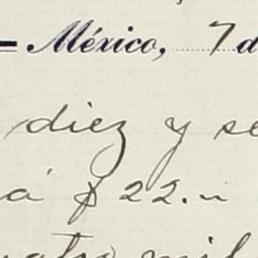 México, 7 d
diez y se
a $22.
mil